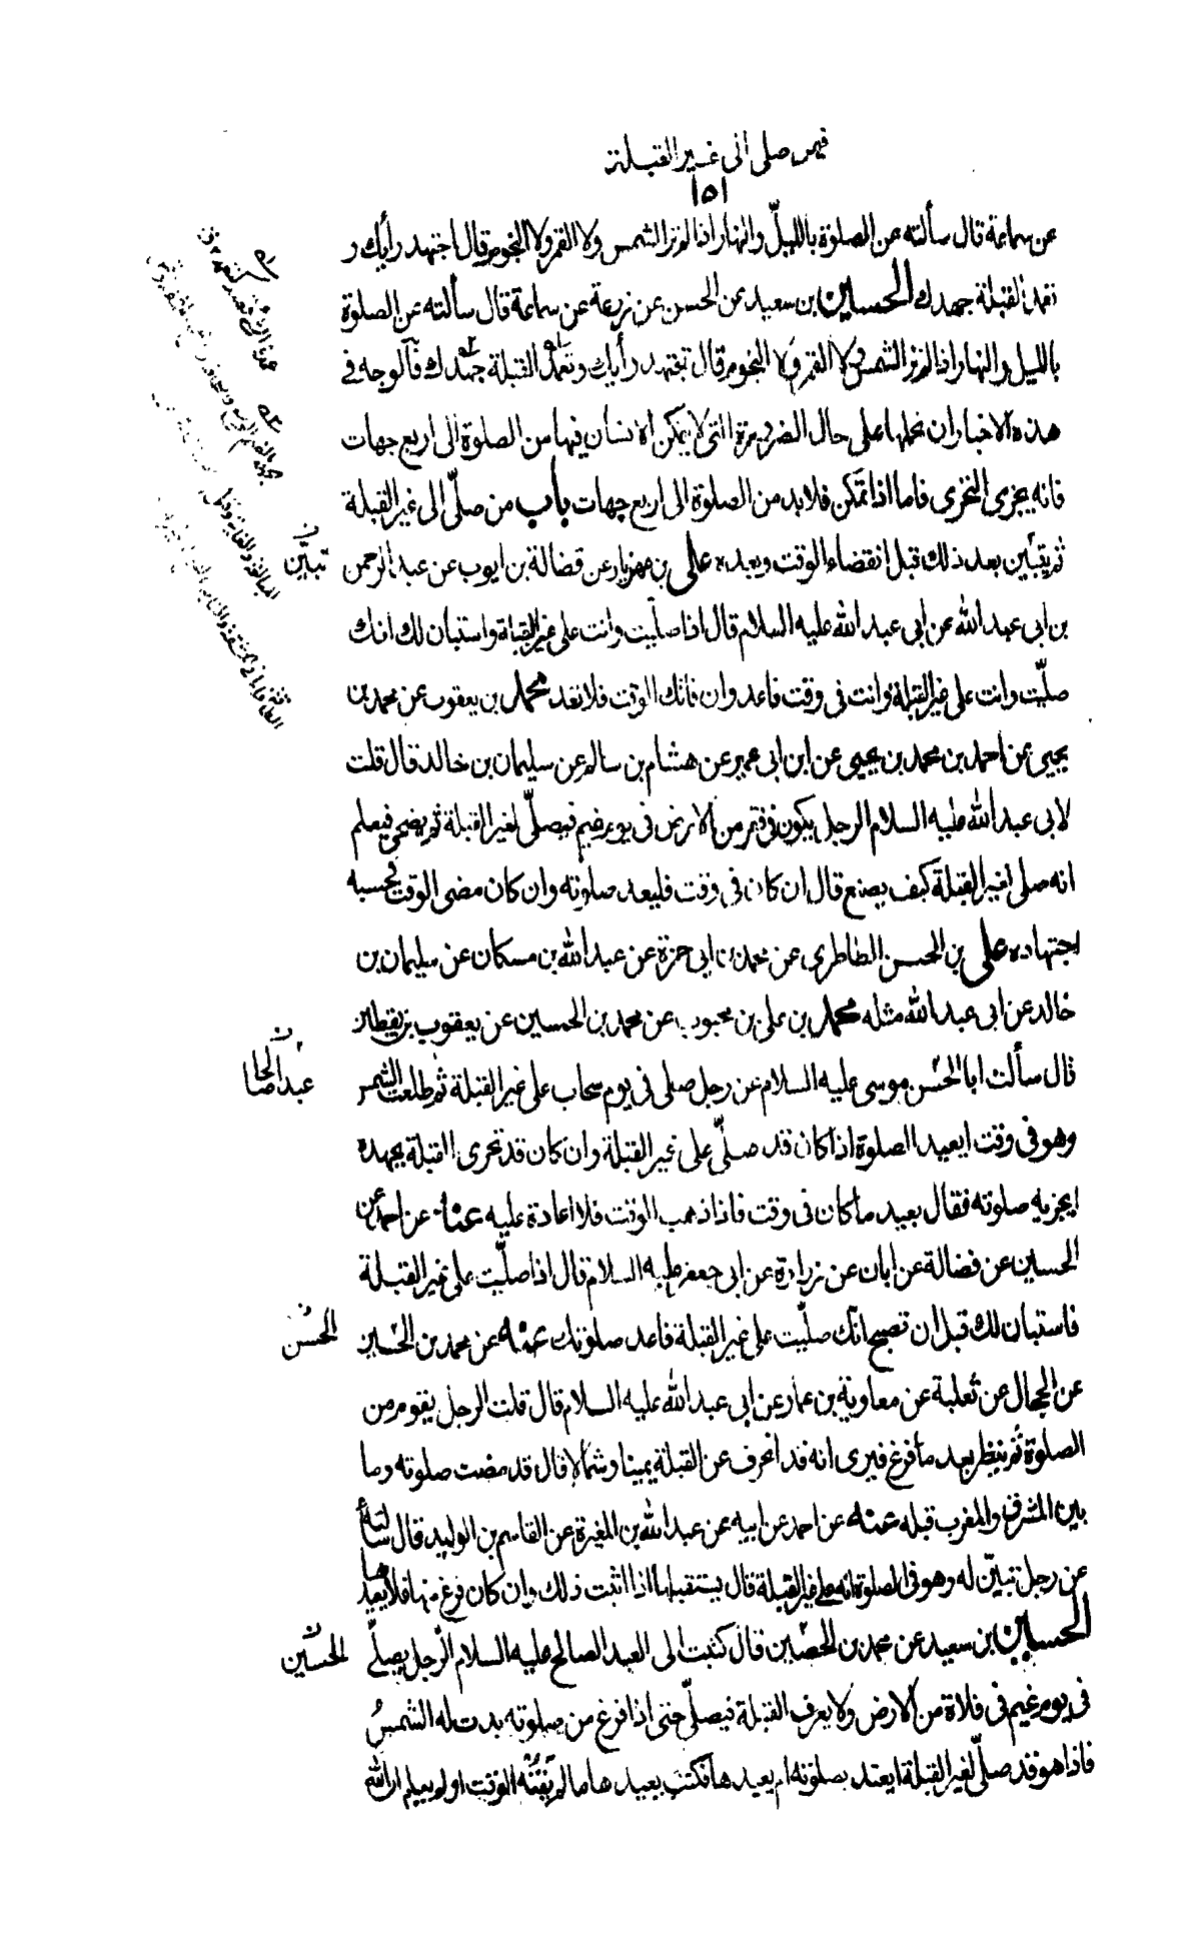 فيمن صلى الى غير القبلة
١٥١
عن سماعة قال سألته عن الصلوة بالليل والنهار اذا لم تر الشمس ولا القمر ولا النجوم قال اجتهد رأيك و
تعمد القبلة جهدك الحسين بن سعيد عن الحسن عن زرعة عن سماعة قال سألته عن الصلوة
بالليل والنهار اذا لم تر الشمس ولا القمر ولا النجوم قال تجتهد رأيك وتعمد القبلة جهدك فالوجه في
هذه الاخبار ان نحملها على حال الضرورة التى لا يتمكن الانسان فيها من الصلوة الى اربع جهات
فانه يجزى التحرى فاما اذا تمكن فلابد من الصلوة الى اربع جهات باب من صلّى الى غير القبلة
ثم يتبيّن بعد ذلك قبل انقضاء الوقت وبعده على بن مهزيار عن فضالة بن ايوب عن عبد الرحمن
تبيّن
بن ابى عبد الله عن ابى عبد الله عليه السلام قال اذا صلّيت وانت على غير القبلة واستبان لك انك
صلّيت وانت على غير القبلة وانت فى وقت فاعد وان فاتك الوقت فلا تعد محمد بن يعقوب عن محمد بن
يحيى عن احمد بن محمد بن يحيى عن ابن ابى عمير عن هشام بن سالم عن سليمان بن خالد قال قلت
لابى عبد الله عليه السلام الرجل يكون فى قفر من الارض فى يوم غيم فيصلّى لغير القبلة ثم يضحى فيعلم
انه صلى لغير القبلة كيف يصنع قال ان كان فى وقت فليعد صلوته وان كان مضى الوقت فحسبه
اجتهاده على بن الحسن الطاطرى عن محمد بن ابى حمزة عن عبد الله بن مسكان عن سليمان بن
خالد عن ابى عبد الله مثله محمد بن على بن محبوب عن محمد بن الحسين عن يعقوب بن يقطين
قال سألت ابا الحسن موسى عليه السلام عن رجل صلى فى يوم سحاب على غير القبلة ثم طلعت الشمس
وهو فى وقت ايعيد الصلوة اذا كان قد صلّى على غير القبلة وان كان قد تحرى القبلة بجهده
ايجزيه صلوته فقال يعيد ما كان فى وقت فاذا ذهب الوقت فلا اعادة عليه عنه عن احمد عن
الحسين عن فضالة عن ابان عن زرارة عن ابى جعفر عليه السلام قال اذا صلّيت على غير القبلة
فاستبان لك قبل ان تصبح انّك صلّيت على غير القبلة فاعد صلوتك عنه عن محمد بن الحسين
الحسن
عن الحجال عن ثعلبة عن معاوية بن عمار عن ابى عبد الله عليه السلام قال قلت الرجل يقوم من
الصلوة ثم ينظر بعد ما فرغ فيرى انه قد انحرف عن القبلة يمينا وشمالا قال قد مضت صلوته وما
بين المشرق والمغرب قبله عنه عن احمد عن ابيه عن عبد الله بن المغيرة عن القاسم بن الوليد قال سألته
عن رجل تبيّن له وهو فى الصلوة انه على غير القبلة قال يستقبلها اذا اثبت ذلك وان كان فرغ منها فلا يعيدها
الحسين بن سعيد عن محمد بن الحصين قال كتبت الى العبد الصالح عليه السلام الرّجل يصلّى
الحسين
فى يوم غيم فى فلاة من الارض ولا يعرف القبلة فيصلّى حتى اذا فرغ من صلوته بدت له الشمس
فاذا هو قد صلّى لغير القبلة ايعتد بصلوته ام يعيدها فكتب يعيدها ما لم يفته الوقت اولم يعلم ان الله